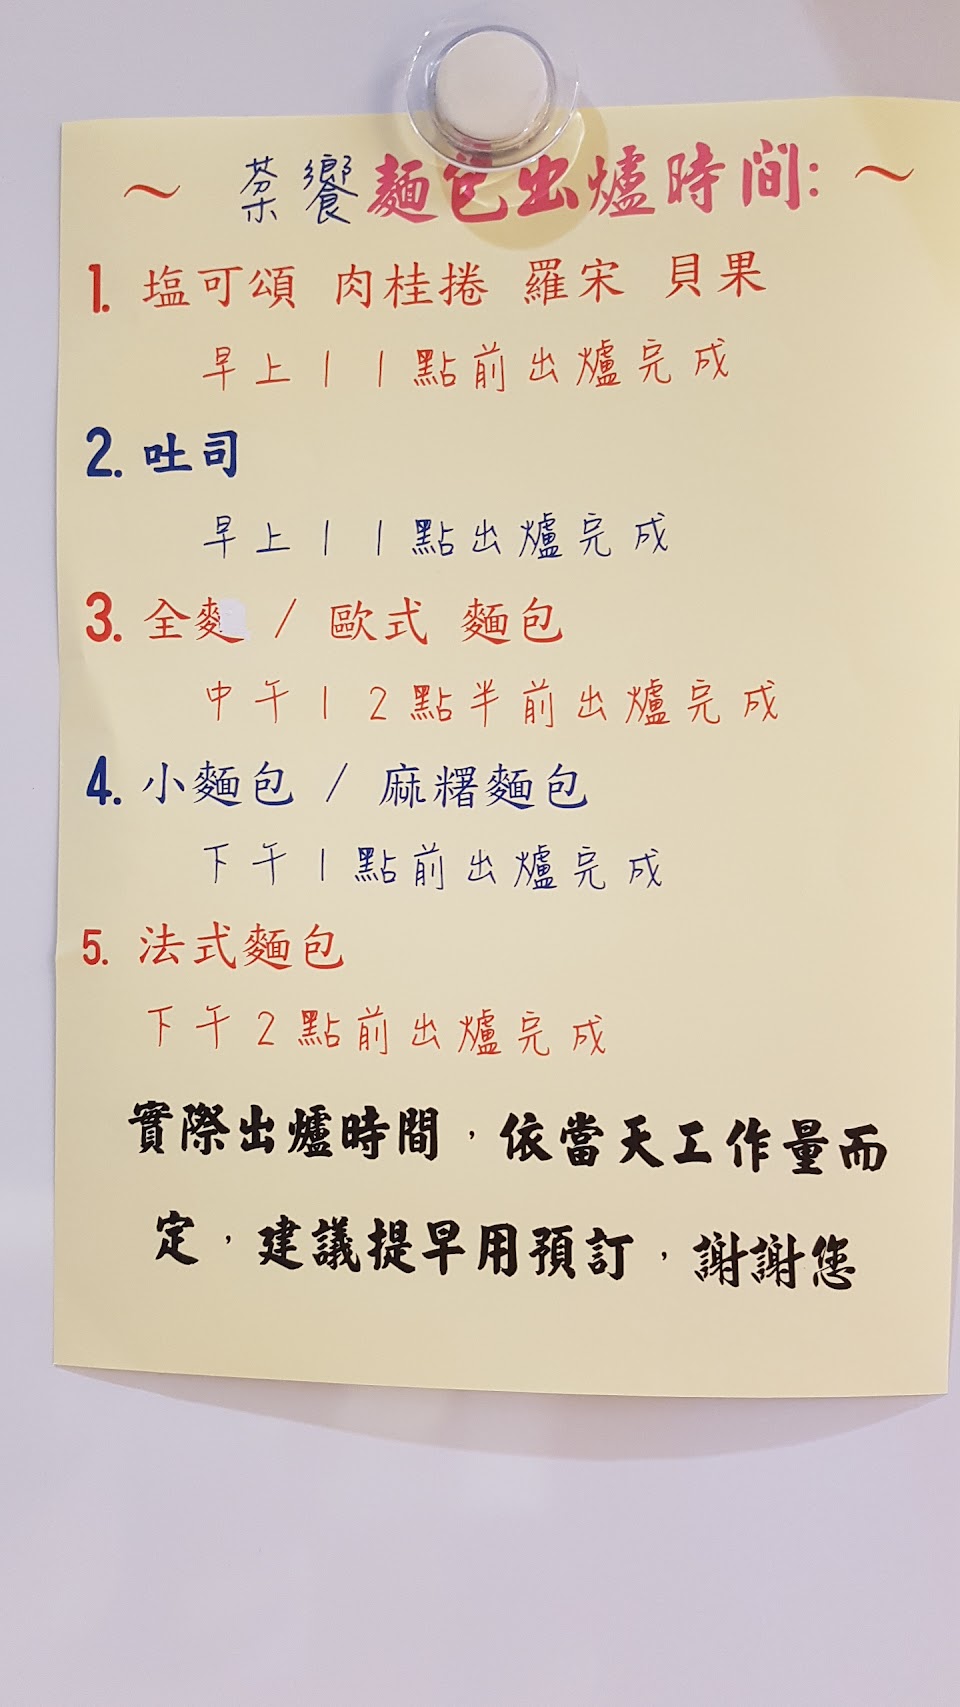 ～ 棻饗麵包出爐時間: ～
1. 塩可頌 肉桂捲 羅宋 貝果
早上11點前出爐完成
2. 吐司
早上11點出爐完成
3. 全麥 / 歐式 麵包
中午12點半前出爐完成
4. 小麵包 / 麻糬麵包
下午1點前出爐完成
5. 法式麵包
下午2點前出爐完成
實際出爐時間，依當天工作量而
定，建議提早用預訂，謝謝您